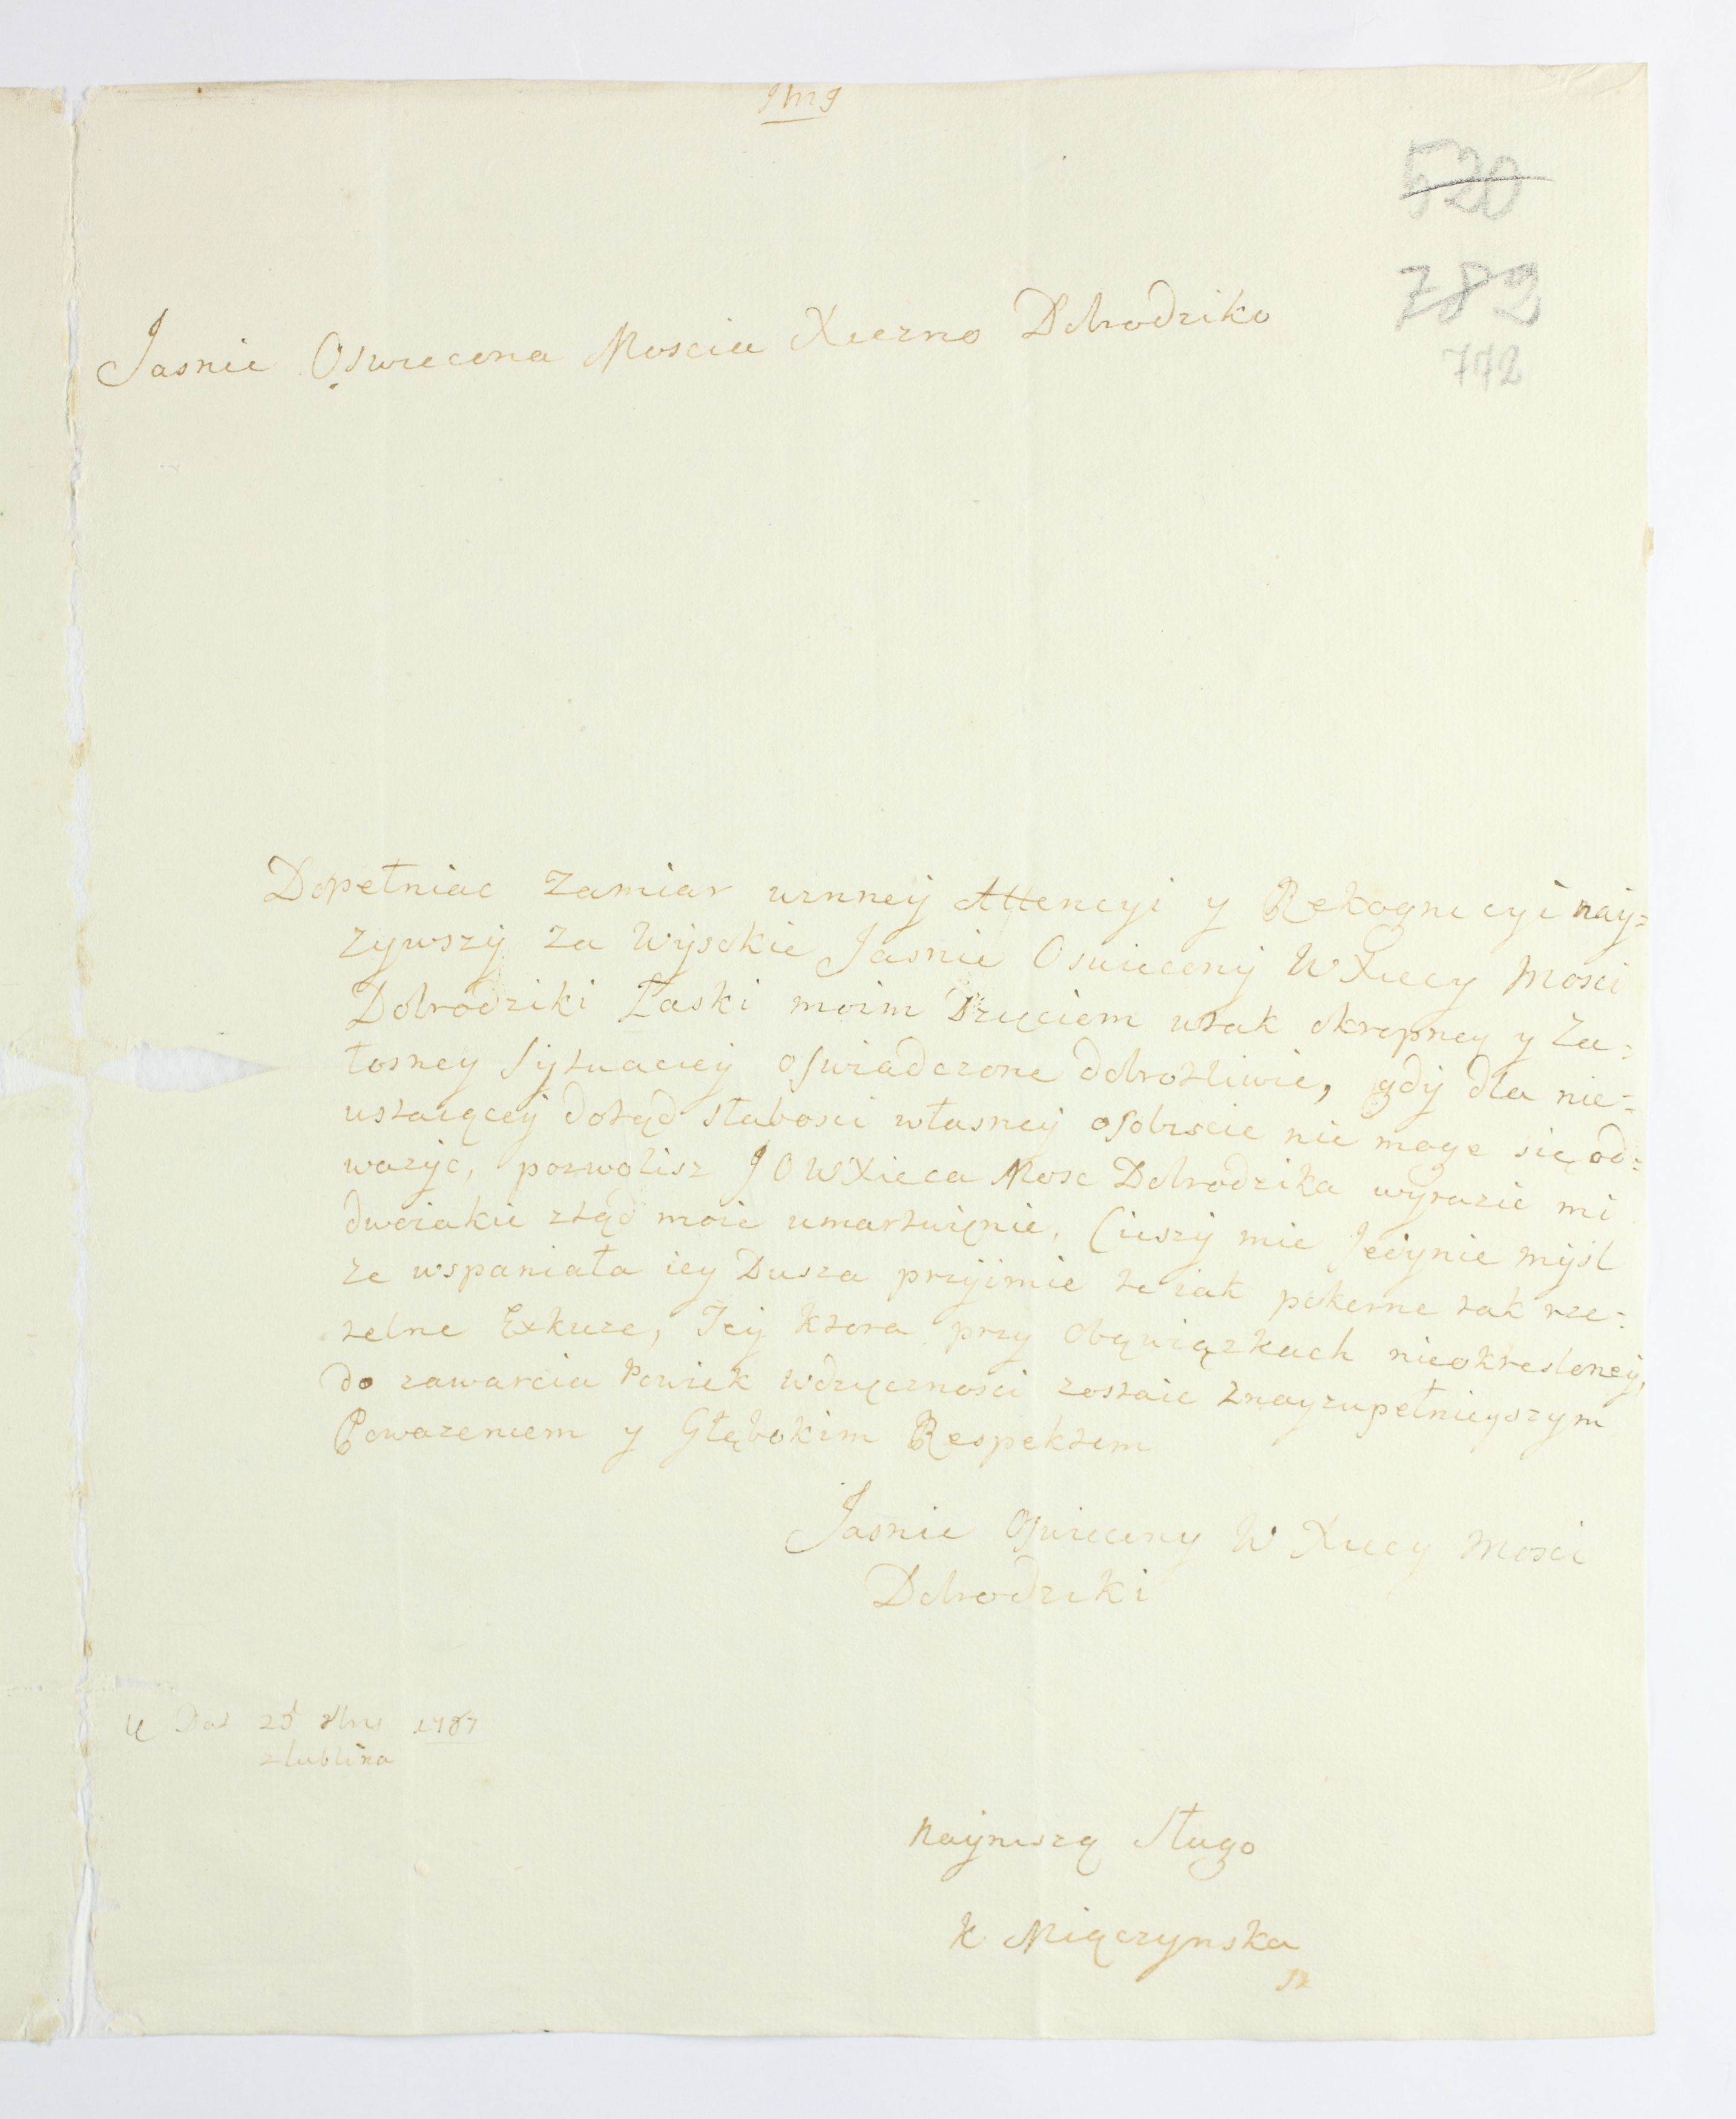 JMJ
520
782
772
Jasnie Oswiecona Moscia Xiezno Dobrodziko
Dopełniac zamiar winney Attencyi y Rekognicyi nay=
zywszy za Wysokie Jasnie Oswieceny W Xiecy Mosci
Dobrodziki Łaski moim Dzięciem wtak okropney y Za=
łosney Sytuacyey oswiadczone dobrotliwie, gdy dla nie=
ustaiącey dotąd słabosci własney osobiscie nie moge się od=
wazyc, pozwolisz J O W Xieca Mosc Dobrodzika wyrazic mi
dwoiakie ztąd moie umartwięnie, Cieszy mie Jedynie mysl
ze wspaniała iey Dusza przyimie te iak pokorne tak rze=
telne Exkuze, Tey ktora przy Obęwiązkach nieokresloney,
do zawarcia Powiek wdzięcznosci zostaie znayzupełnieyszym
Powazeniem y Głębokim Respektem
Jasnie Oswieceny W Xiecy Mosci
Dobrodziki
Dat 25 1787
z Lublina
nayniszą Sługo
K Miączynska